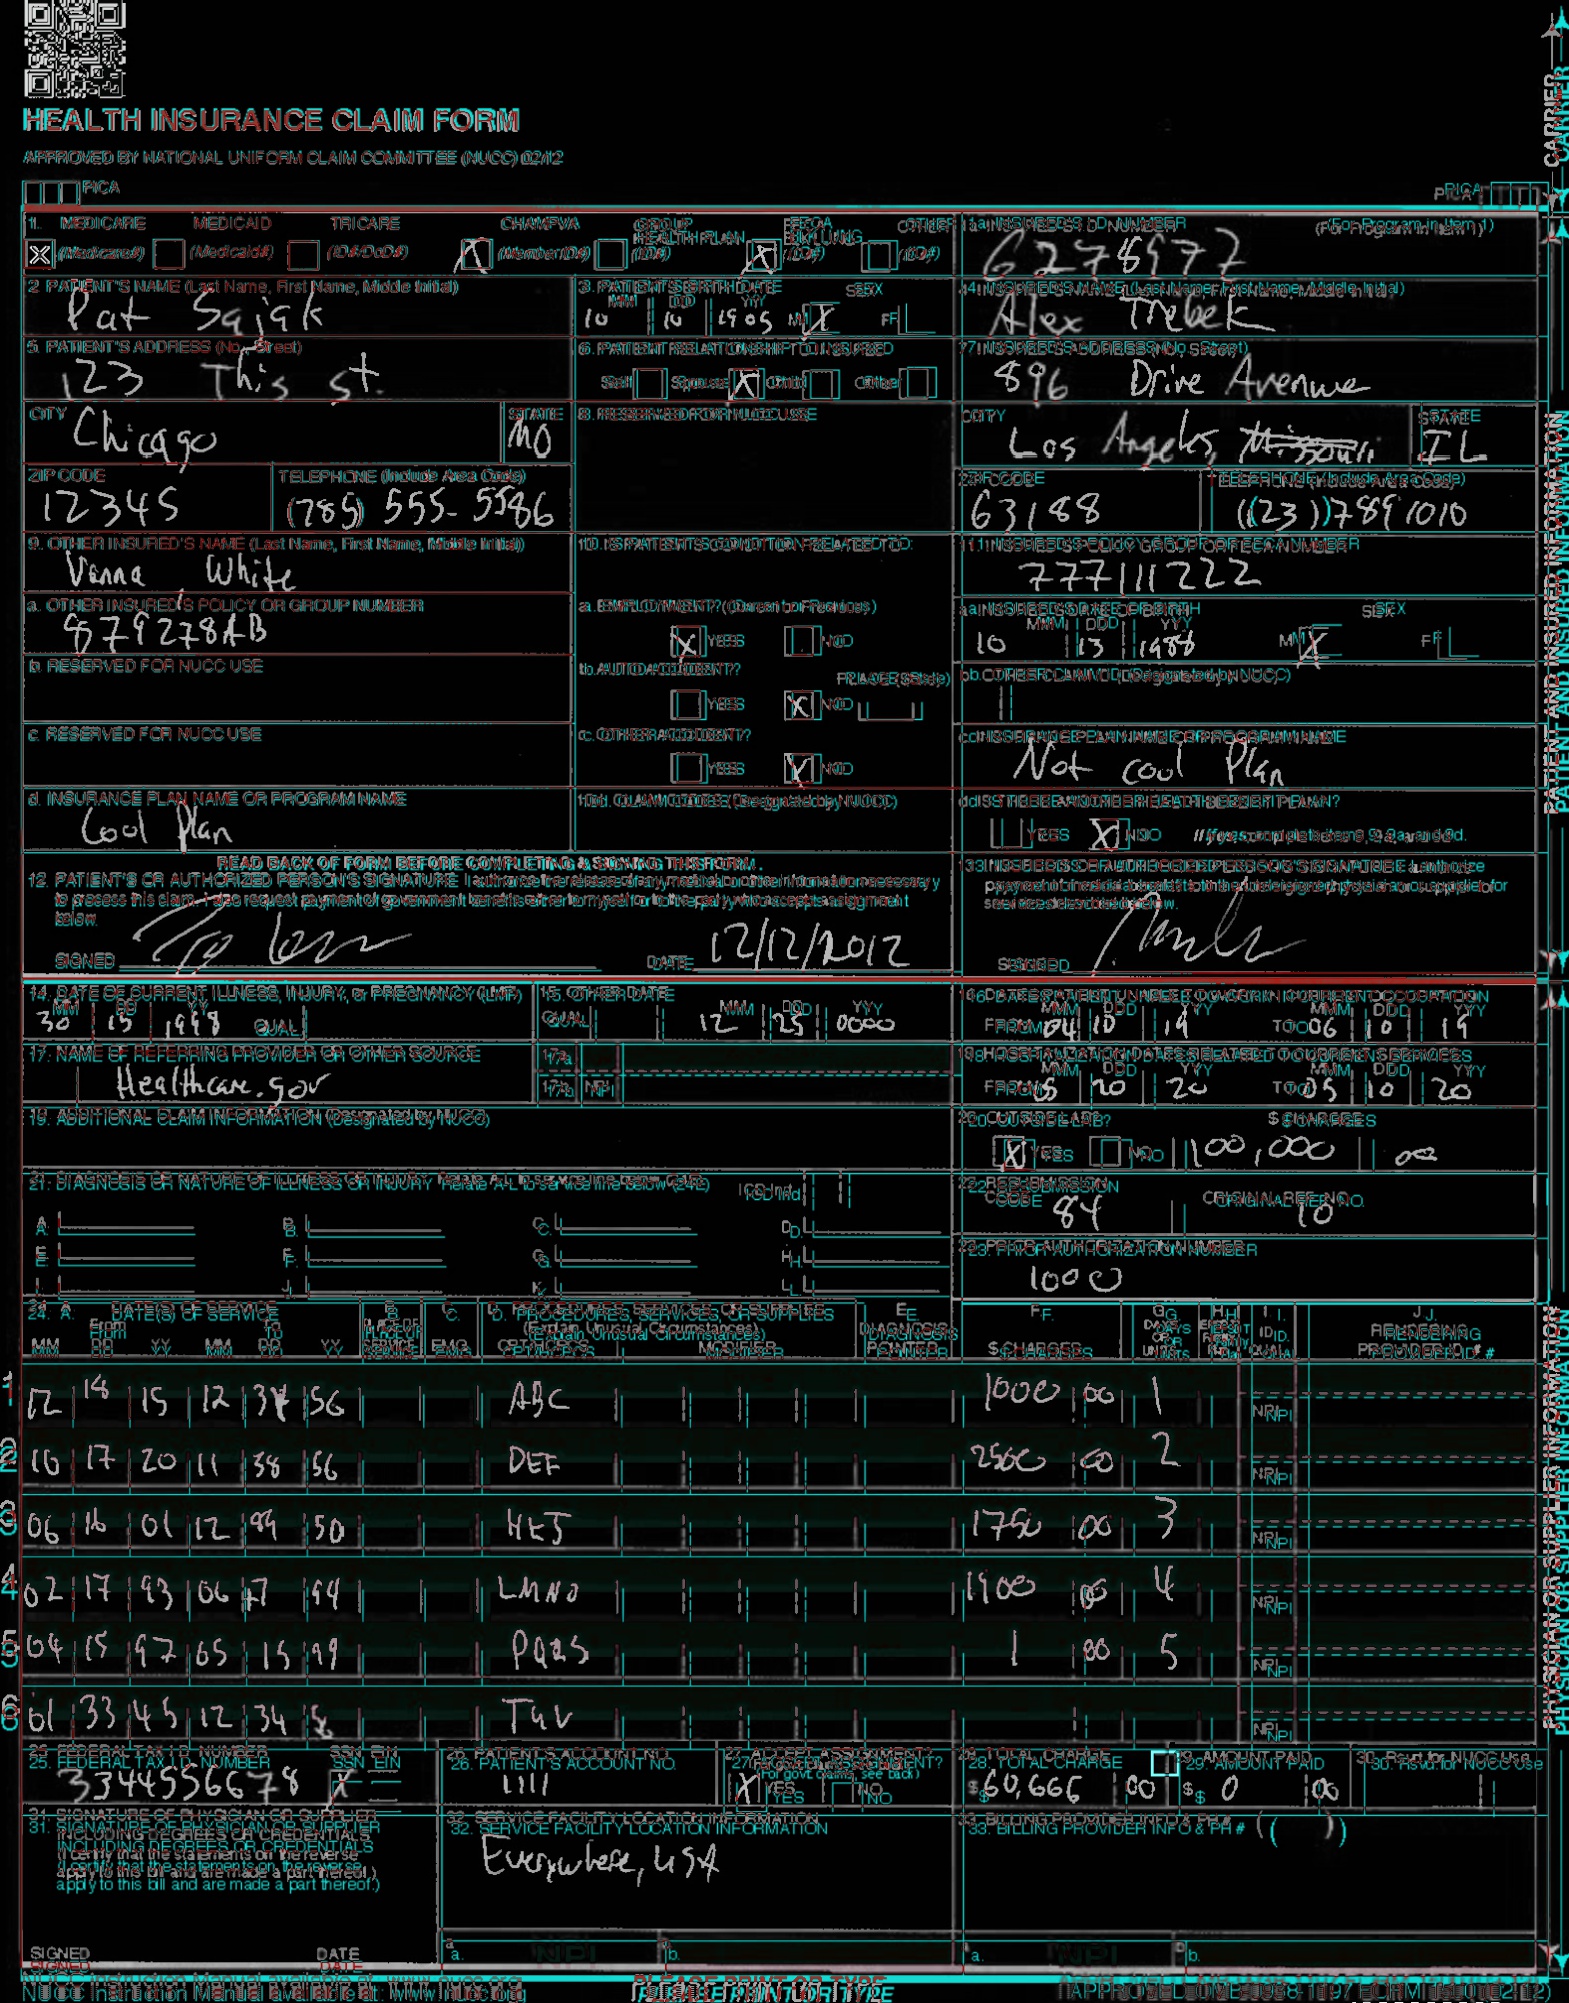 HEALTH INSURANCE CLAIM FORM
APPROVED BY NATIONAL UNIFORM CLAIM COMMITTEE (NUCC) 02/12
PICA
PICA
CARRIER
1. MEDICARE MEDICAID TRICARE CHAMPVA GROUP HEALTH PLAN FECA BLK LUNG OTHER
(Medicare#) (Medicaid#) (ID#/DoD#) (Member ID#) (ID#) (ID#) (ID#)
1a. INSURED'S I.D. NUMBER (For Program in Item 1)
6278977
2. PATIENT'S NAME (Last Name, First Name, Middle Initial)
Pat Sajak
3. PATIENT'S BIRTH DATE SEX
MM DD YY
10 10 1905 M X F
4. INSURED'S NAME (Last Name, First Name, Middle Initial)
Alex Trebek
5. PATIENT'S ADDRESS (No., Street)
123 This st.
6. PATIENT RELATIONSHIP TO INSURED
Self Spouse X Child Other
7. INSURED'S ADDRESS (No., Street)
896 Drive Avenue
CITY STATE
Chicago MO
8. RESERVED FOR NUCC USE
CITY STATE
Los Angeles, Missouri IL
ZIP CODE TELEPHONE (Include Area Code)
12345 (785) 555-5586
ZIP CODE TELEPHONE (Include Area Code)
63188 (23) 789 1010
9. OTHER INSURED'S NAME (Last Name, First Name, Middle Initial)
Vanna White
10. IS PATIENT'S CONDITION RELATED TO:
11. INSURED'S POLICY GROUP OR FECA NUMBER
777111222
a. OTHER INSURED'S POLICY OR GROUP NUMBER
879278AB
a. EMPLOYMENT? (Current or Previous)
X YES NO
a. INSURED'S DATE OF BIRTH SEX
MM DD YY
10 13 1988 M X F
b. RESERVED FOR NUCC USE
b. AUTO ACCIDENT? PLACE (State)
YES X NO
b. OTHER CLAIM ID (Designated by NUCC)
c. RESERVED FOR NUCC USE
c. OTHER ACCIDENT?
YES X NO
c. INSURANCE PLAN NAME OR PROGRAM NAME
Not cool Plan
d. INSURANCE PLAN NAME OR PROGRAM NAME
Cool Plan
10d. CLAIM CODES (Designated by NUCC)
d. IS THERE ANOTHER HEALTH BENEFIT PLAN?
YES X NO If yes, complete items 9, 9a, and 9d.
READ BACK OF FORM BEFORE COMPLETING & SIGNING THIS FORM.
12. PATIENT'S OR AUTHORIZED PERSON'S SIGNATURE I authorize the release of any medical or other information necessary
to process this claim. I also request payment of government benefits either to myself or to the party who accepts assignment
below.
SIGNED DATE 12/12/2012
13. INSURED'S OR AUTHORIZED PERSON'S SIGNATURE I authorize
payment of medical benefits to the undersigned physician or supplier for
services described below.
SIGNED
PATIENT AND INSURED INFORMATION
14. DATE OF CURRENT ILLNESS, INJURY, or PREGNANCY (LMP)
MM DD YY
30 15 1998 QUAL.
15. OTHER DATE
QUAL. MM DD YY
12 25 0000
16. DATES PATIENT UNABLE TO WORK IN CURRENT OCCUPATION
MM DD YY MM DD YY
FROM 04 10 19 TO 06 10 19
17. NAME OF REFERRING PROVIDER OR OTHER SOURCE
Healthcare.gov
17a.
17b. NPI
18. HOSPITALIZATION DATES RELATED TO CURRENT SERVICES
MM DD YY MM DD YY
FROM 05 20 20 TO 05 10 20
19. ADDITIONAL CLAIM INFORMATION (Designated by NUCC)
20. OUTSIDE LAB? $ CHARGES
X YES NO 100,000 00
21. DIAGNOSIS OR NATURE OF ILLNESS OR INJURY Relate A-L to service line below (24E) ICD Ind.
A. B. C. D.
E. F. G. H.
I. J. K. L.
22. RESUBMISSION
CODE ORIGINAL REF. NO.
84 10
23. PRIOR AUTHORIZATION NUMBER
1000
24. A. DATE(S) OF SERVICE B. C. D. PROCEDURES, SERVICES, OR SUPPLIES E. F. G. H. I. J.
From To PLACE OF (Explain Unusual Circumstances) DIAGNOSIS DAYS OR ID. RENDERING
MM DD YY MM DD YY SERVICE EMG CPT/HCPCS MODIFIER POINTER $ CHARGES UNITS QUAL. PROVIDER ID. #
1 12 18 15 12 34 56 ABC 1000 00 1 NPI
2 10 17 20 11 38 56 DEF 2500 00 2 NPI
3 06 16 01 12 99 50 HIJ 1750 00 3 NPI
4 02 17 93 06 17 94 LMNO 1900 00 4 NPI
5 04 15 97 05 15 99 PQRS 1 00 5 NPI
6 61 33 45 12 34 TUV NPI
25. FEDERAL TAX I.D. NUMBER SSN EIN
3344556678 X
26. PATIENT'S ACCOUNT NO.
1111
27. ACCEPT ASSIGNMENT?
(For govt. claims, see back)
X YES NO
28. TOTAL CHARGE
$ 60,666 00
29. AMOUNT PAID
$ 0 00
30. Rsvd for NUCC Use
31. SIGNATURE OF PHYSICIAN OR SUPPLIER
INCLUDING DEGREES OR CREDENTIALS
(I certify that the statements on the reverse
apply to this bill and are made a part thereof.)
SIGNED DATE
32. SERVICE FACILITY LOCATION INFORMATION
Everywhere, USA
a. NPI b.
33. BILLING PROVIDER INFO & PH # ( )
a. NPI b.
PHYSICIAN OR SUPPLIER INFORMATION
NUCC Instruction Manual available at: www.nucc.org
PLEASE PRINT OR TYPE